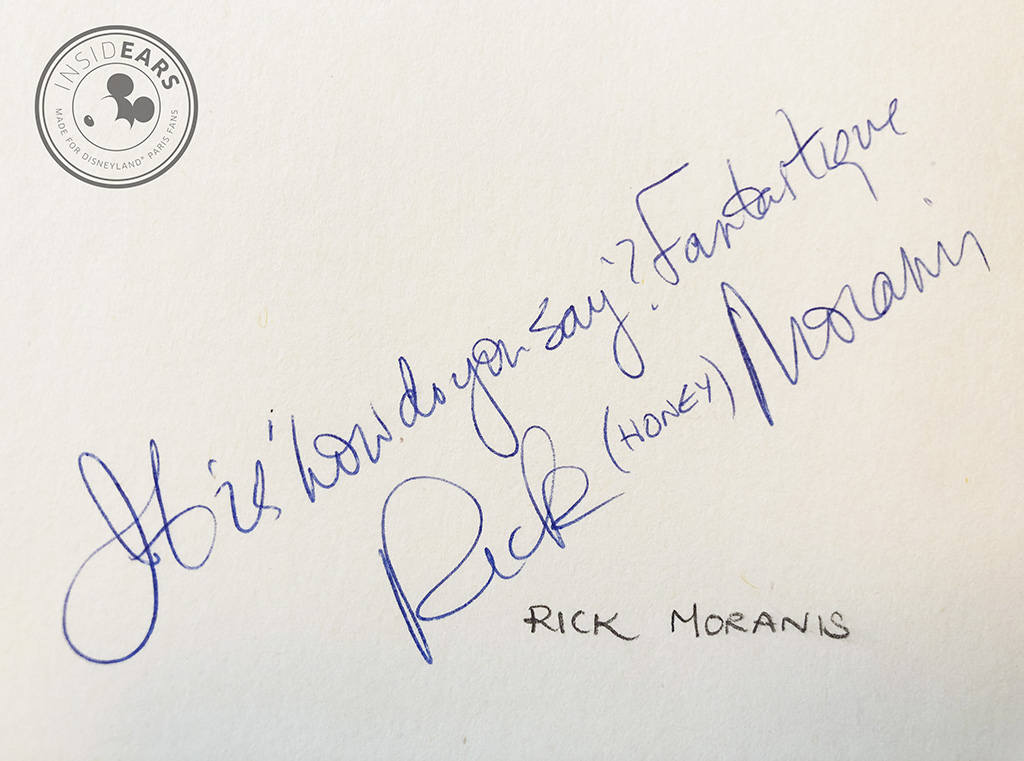 INSIDEARS
MADE FOR DISNEYLAND® PARIS FANS
It is 'how do you say'? Fantastique
Rick (HONEY) Moranis
RICK MORANIS